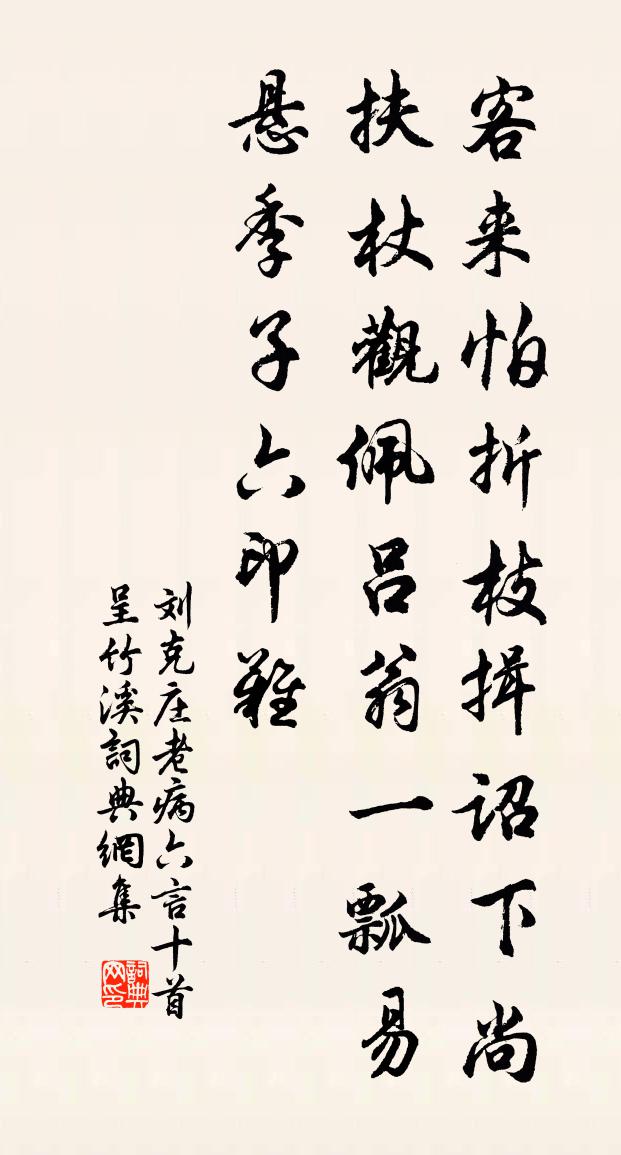 客来怕折枝揖詔下尚
扶杖觀佩呂翁一瓢易
懸季子六印難
刘克庄老病六言十首
呈竹溪詞典網集
詞典
网印